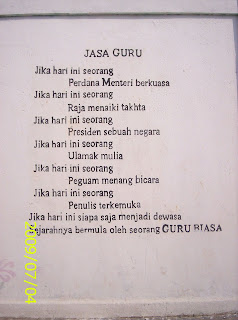 JASA GURU
Jika hari ini seorang
Perdana Menteri berkuasa
Jika hari ini seorang
Raja menaiki takhta
Jika hari ini seorang
Presiden sebuah negara
Jika hari ini seorang
Ulamak mulia
Jika hari ini seorang
Peguam menang bicara
Jika hari ini seorang
Penulis terkemuka
Jika hari ini siapa saja menjadi dewasa
Sejarahnya bermula oleh seorang GURU BIASA
2009/07/04